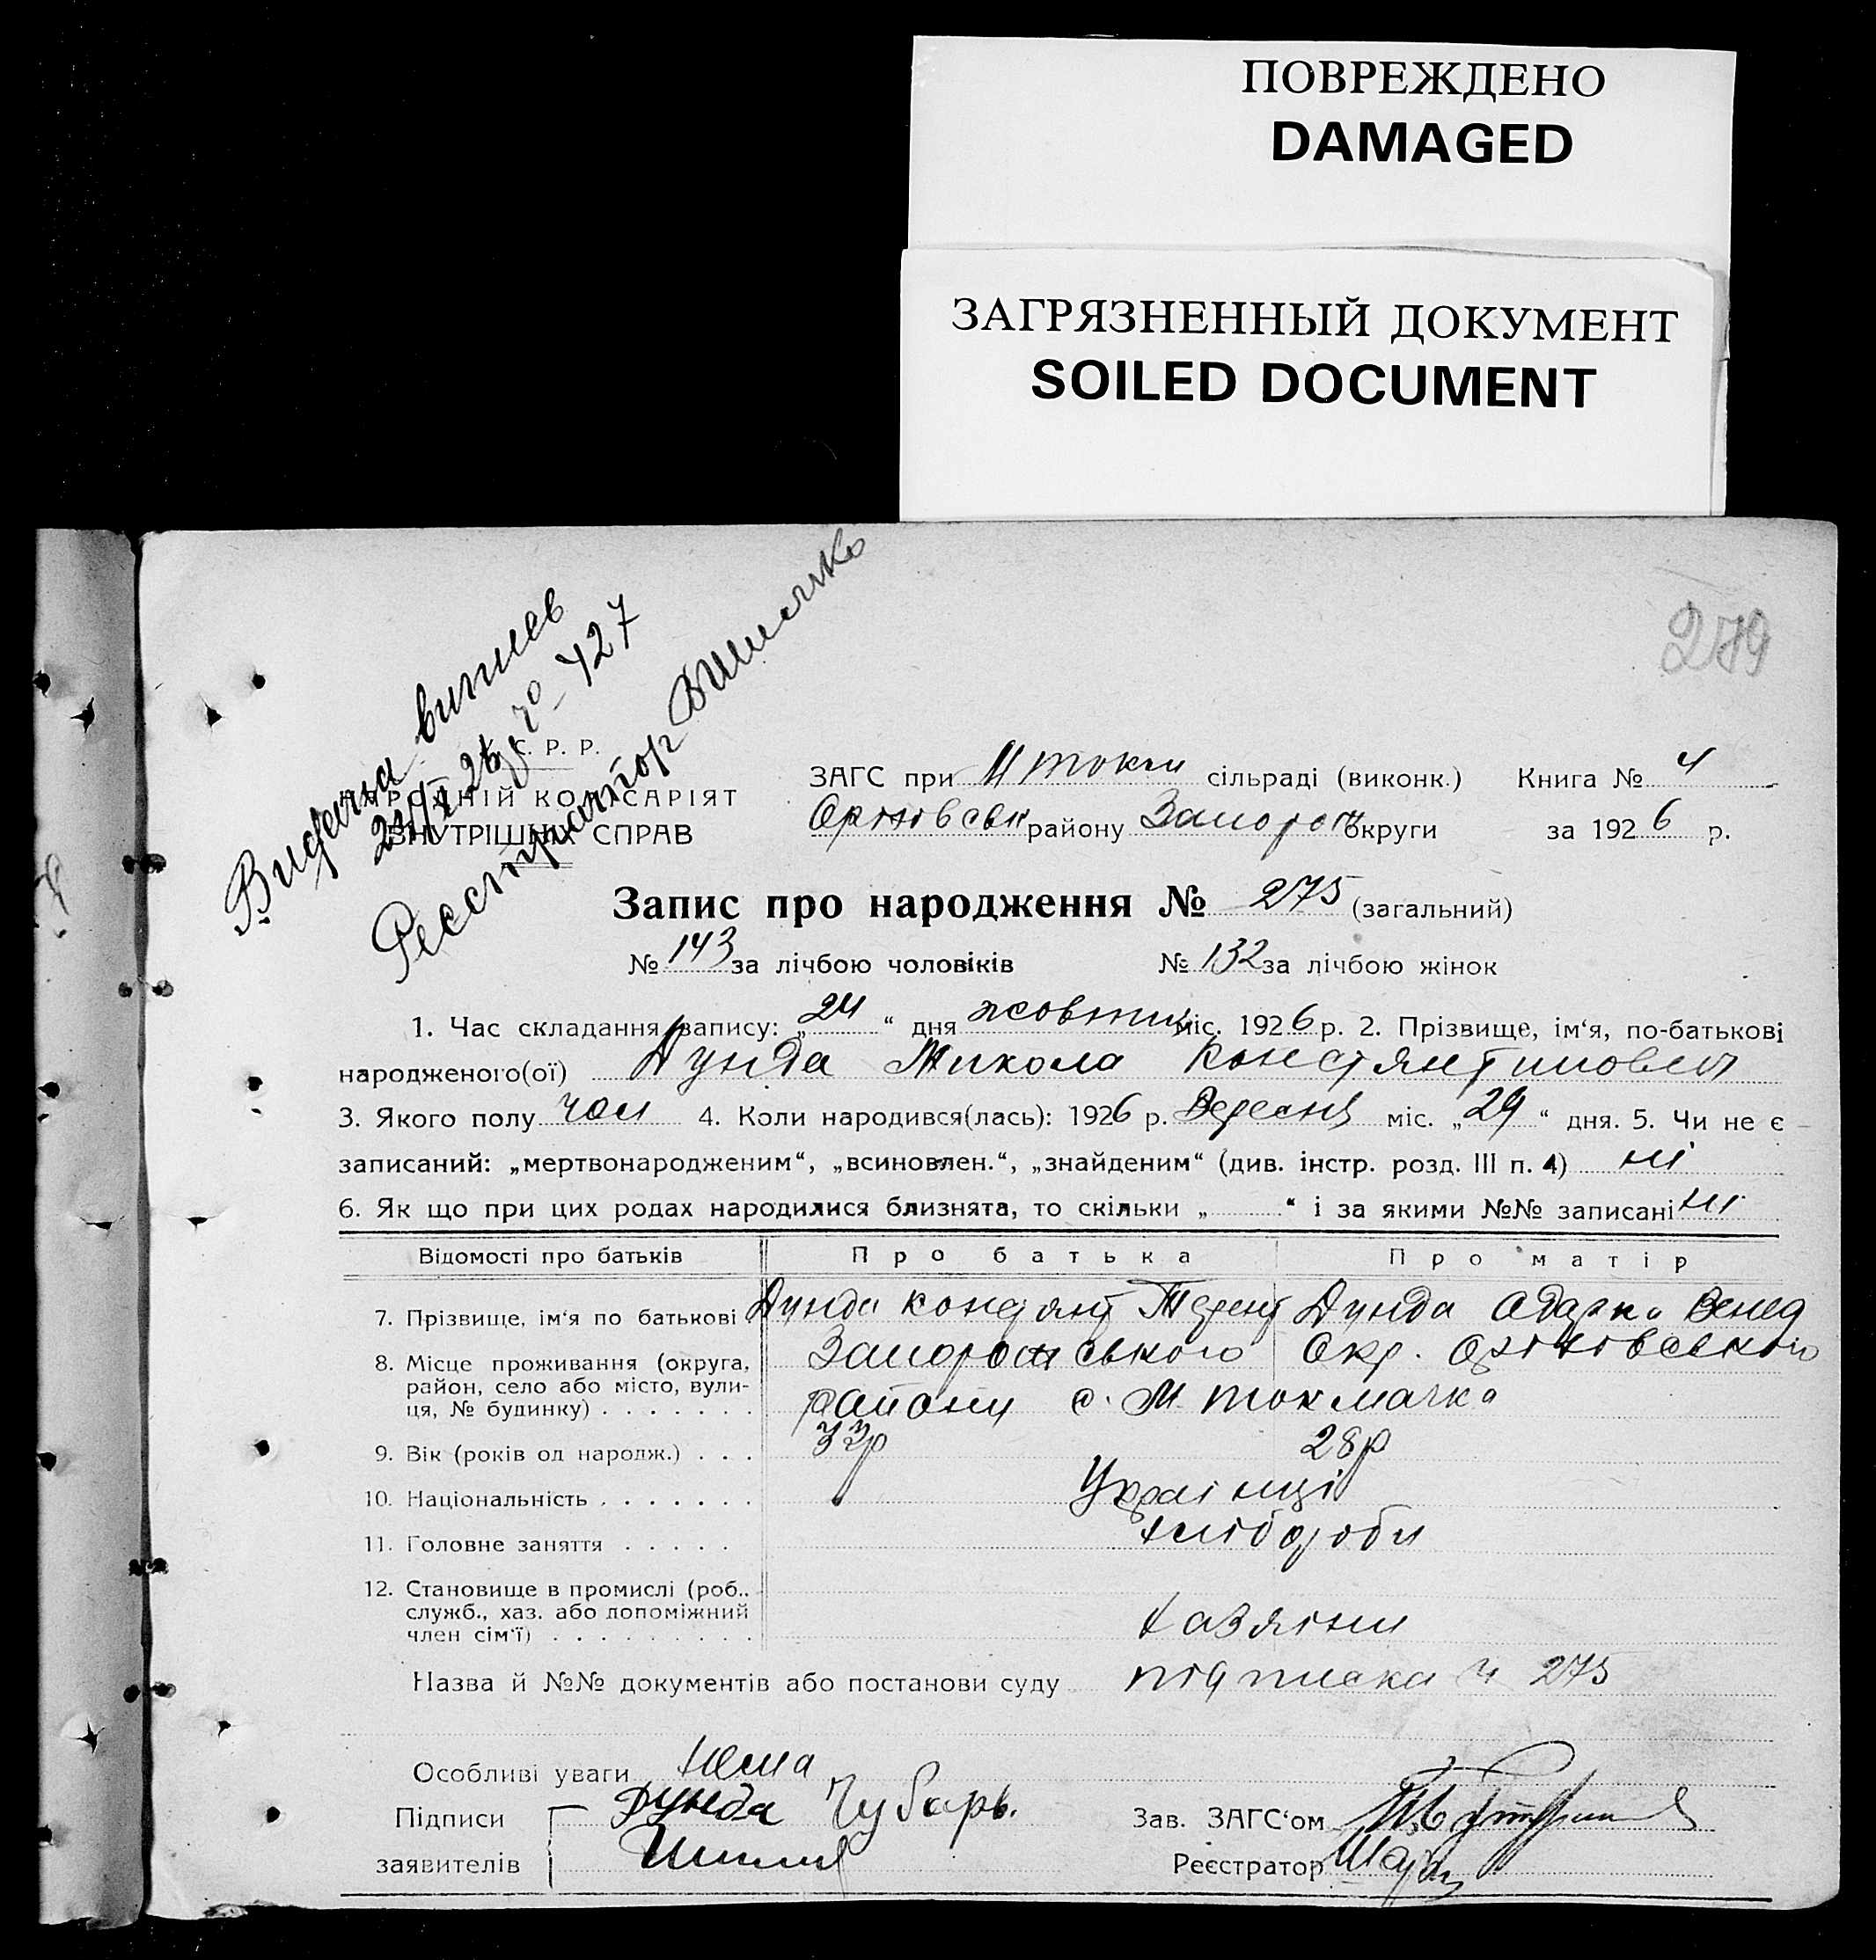 ПОВРЕЖДЕНО
DAMAGED
ЗАГРЯЗНЕННЫЙ ДОКУМЕНТ
SOILED DOCUMENT
279
Видана випис
427
Реєстратор
С. Р. Р.
ВНУТРІШНІХ СПРАВ
ЗАГС при М токм сільраді (виконк.) Книга № 4
Оріхівськ району Запорож округи за 1926 р.
Запис про народження № 275 (загальний)
№ 143 за лічбою чоловіків № 132 за лічбою жінок
1. Час складання запису: „24“ дня жовтня міс. 1926 р. 2. Прізвище, ім‘я, по-батькові
народженого(ої) Дунда Микола Константинович
3. Якого полу чол 4. Коли народився(лась): 1926 р. Вересня міс. „29“ дня. 5. Чи не є
записаний: „мертвонародженим“, „всиновлен.“, „знайденим“ (див. інстр. розд. III п. 4) ні
6. Як що при цих родах народилися близнята, то скільки „ “ і за якими №№ записані ні
Відомості про батьків Про батька Про матір
7. Прізвище, ім‘я по батькові Дунда Констянт Терент Дунда Одарка
8. Місце проживання (округа, Запорожського Окр. Оріхівського
район, село або місто, вули- району с. М токмачка
ця, № будинку) . . . . . . .
9. Вік (років од народж.) . . . 33р 28р
10. Національність . . . . . . . Українці
11. Головне заняття . . . . . хлібороби
12. Становище в промислі (роб..
служб., хаз. або допоміжний хазяіни
член сім‘ї) . . . . . . . . .
Назва й №№ документів або постанови суду підписка ч 275
Особливі уваги Нема
Підписи Дунда Чубарь.
заявителів
Зав. ЗАГС‘ом
Реєстратор